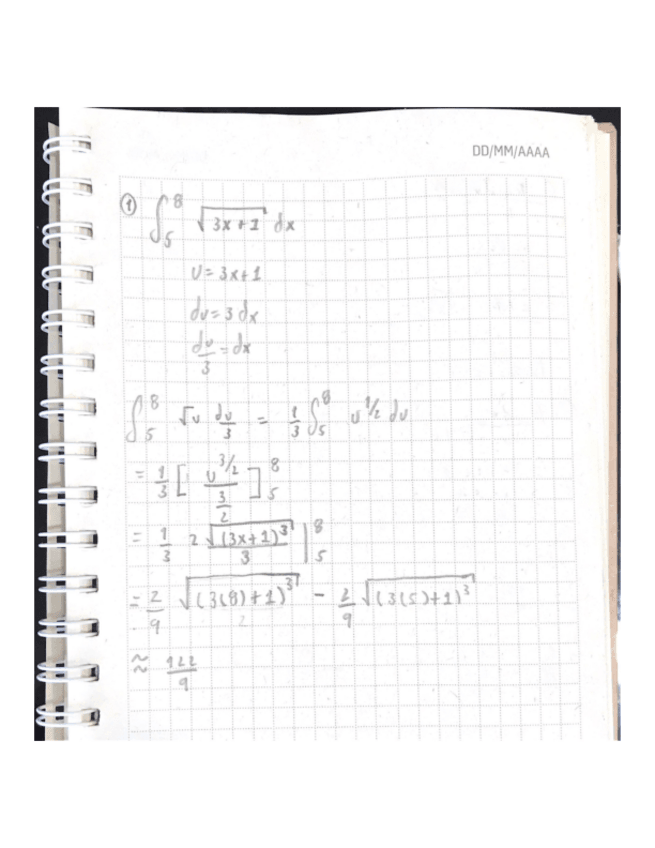 DD/MM/AAAA
① ∫₅⁸ √(3x+1) dx
u = 3x+1
du = 3 dx
du/3 = dx
∫₅⁸ √u du/3 = 1/3 ∫₅⁸ u^(1/2) du
= 1/3 [ u^(3/2) / (3/2) ]₅⁸
= 1/3 2√((3x+1)³)/3 |₅⁸
= 2/9 √((3(8)+1)³) - 2/9 √((3(5)+1)³)
≈ 122/9